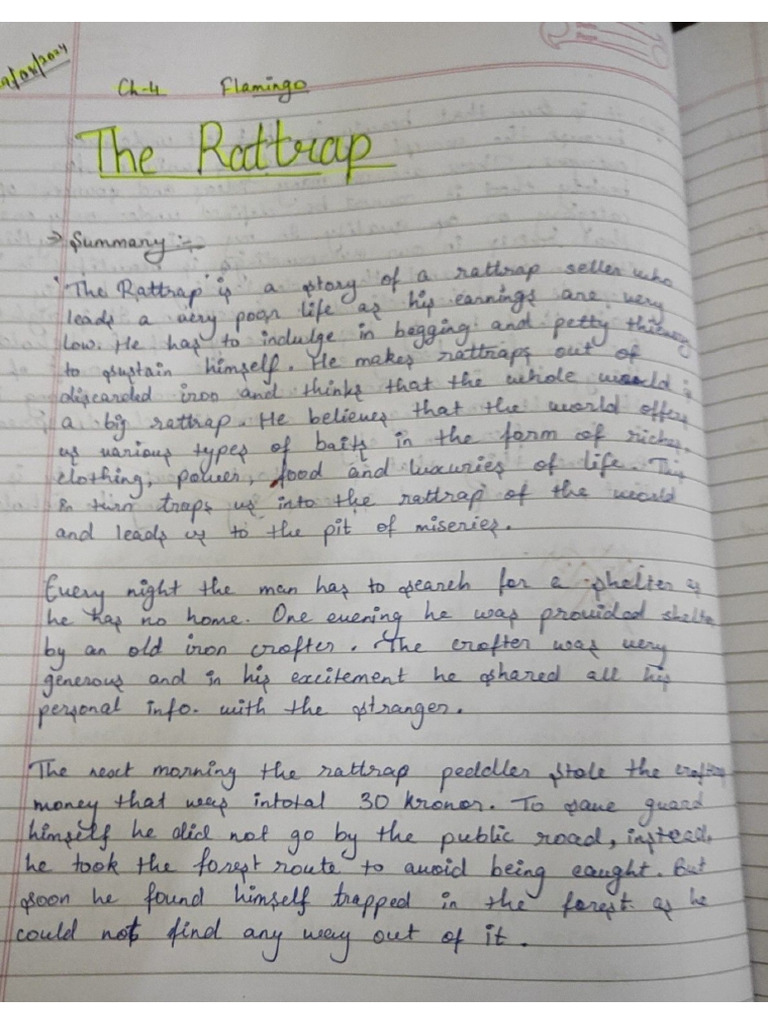 Ch-4 Flamingo
The Rattrap
→ Summary :-
'The Rattrap' is a story of a rattrap seller who
leads a very poor life as his earnings are very
low. He has to indulge in begging and petty thievery
to sustain himself. He makes rattraps out of
discarded iron and thinks that the whole world is
a big rattrap. He believes that the world offers
us various types of baits in the form of riches,
clothing, power, food and luxuries of life. This
in turn traps us into the rattrap of the world
and leads us to the pit of miseries.
Every night the man has to search for a shelter as
he has no home. One evening he was provided shelter
by an old iron crofter. The crofter was very
generous and in his excitement he shared all his
personal info. with the stranger.
The next morning the rattrap peddler stole the
money that was intotal 30 kronor. To save guard
himself he did not go by the public road, instead,
he took the forest route to avoid being caught. But
soon he found himself trapped in the forest as he
could not find any way out of it.